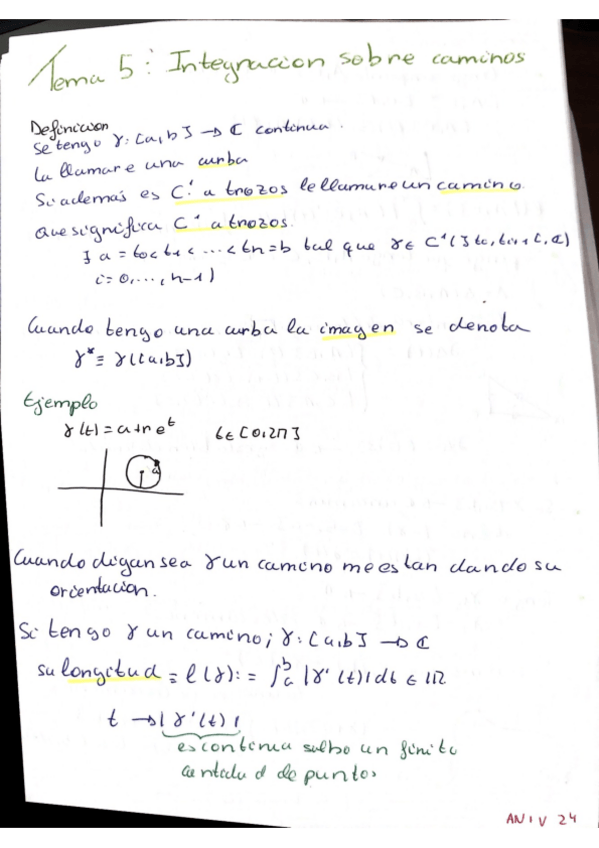 Tema 5: Integracion sobre caminos
Definicion
Se tengo γ: [a,b] → ℂ continua.
La llamare una curba
Si ademas es C¹ a trozos le llamare un camino.
Que significa C¹ a trozos.
∃ a = t0 < t1 < ... < tn = b tal que γ ∈ C¹(]ti, ti+1[, ℂ)
i = 0, ..., n-1)
Cuando tengo una curba la imagen se denota
γ* ≡ γ([a,b])
Ejemplo
γ(t) = a + r e^t t ∈ [0,2π]
a
Cuando digan sea γ un camino me estan dando su
orientacion.
Si tengo γ un camino; γ: [a,b] → ℂ
su longitud ≡ l(γ) := ∫_a^b |γ'(t)| dt ∈ ℝ
t → |γ'(t)|
es continua salbo un finito
cantidad de puntos
ANIV 24